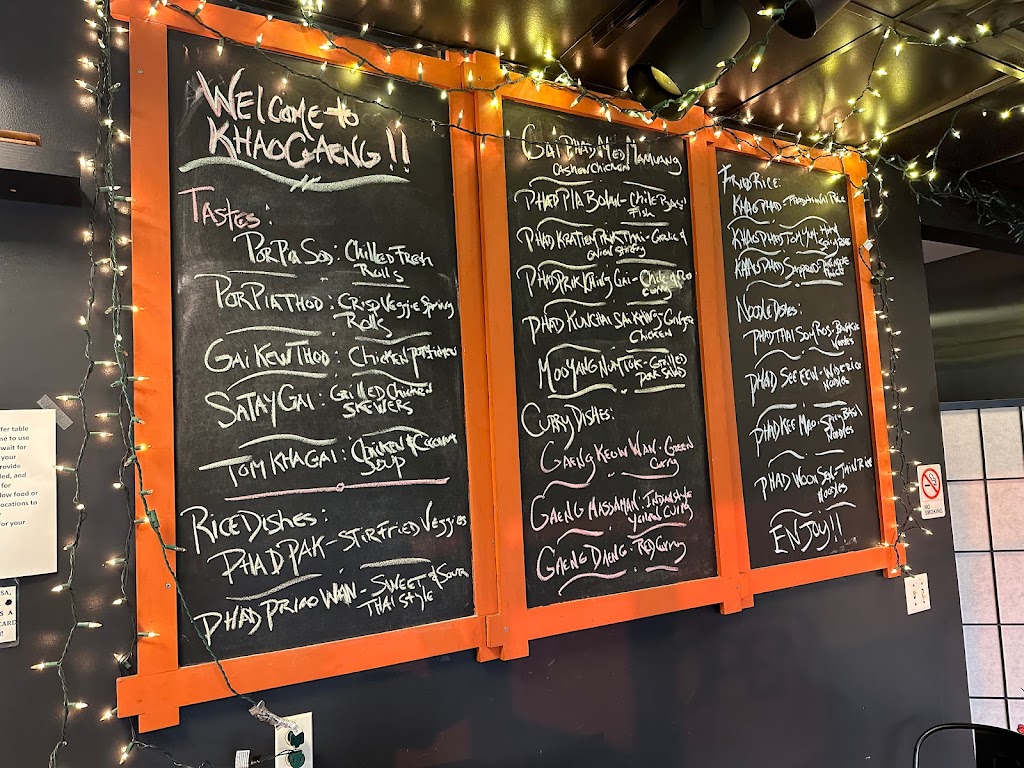 Welcome to
KHAO GAENG!!
Tastes:
Por Pia Sod: Chilled Fresh
Rolls
Por Pia Thod: Crisp Veggie Spring
Rolls
Gai Kew Thod: Chicken Potstickers
Satay Gai: Grilled Chicken
Skewers
Tom Kha Gai: Chicken & Coconut
Soup
Rice Dishes:
Phad Pak - Stir Fried Veggies
Phad Priao Wan - Sweet & Sour
Thai Style
Gai Phad Med Mamuang
Cashew Chicken
Phad Pla Bolan - Chile Basil
Fish
Phad Kratiem Prik Thai - Garlic &
Phad Prik Khing Gai - Chile & Red
Curry
Phad Kung Gai Sai Khing - Ginger
Chicken
Moo Yang Num Tok - Grilled
Pork Salad
Curry Dishes:
Gaeng Keow Wan - Green
Curry
Gaeng Massaman - Indian Style
Yellow Curry
Gaeng Daeng - Red Curry
Fried Rice:
Khao Phad - Traditional Rice
Khao Phad Tom Yum - Hot
Khao Phad Sapparod - Pineapple
Noodle Dishes:
Phad Thai Sod Ros - Bangkok
Noodles
Phad See Eew - Wide Rice
Noodles
Phad Kee Mao - Spicy Basil
Noodles
Phad Woon Sen - Thin Rice
Noodles
ENJOY!!
fer table
me to use
wait for
your
rovide
led, and
for
low food or
ocations to
for your
SA,
S A
CARD
NO
SMOKING